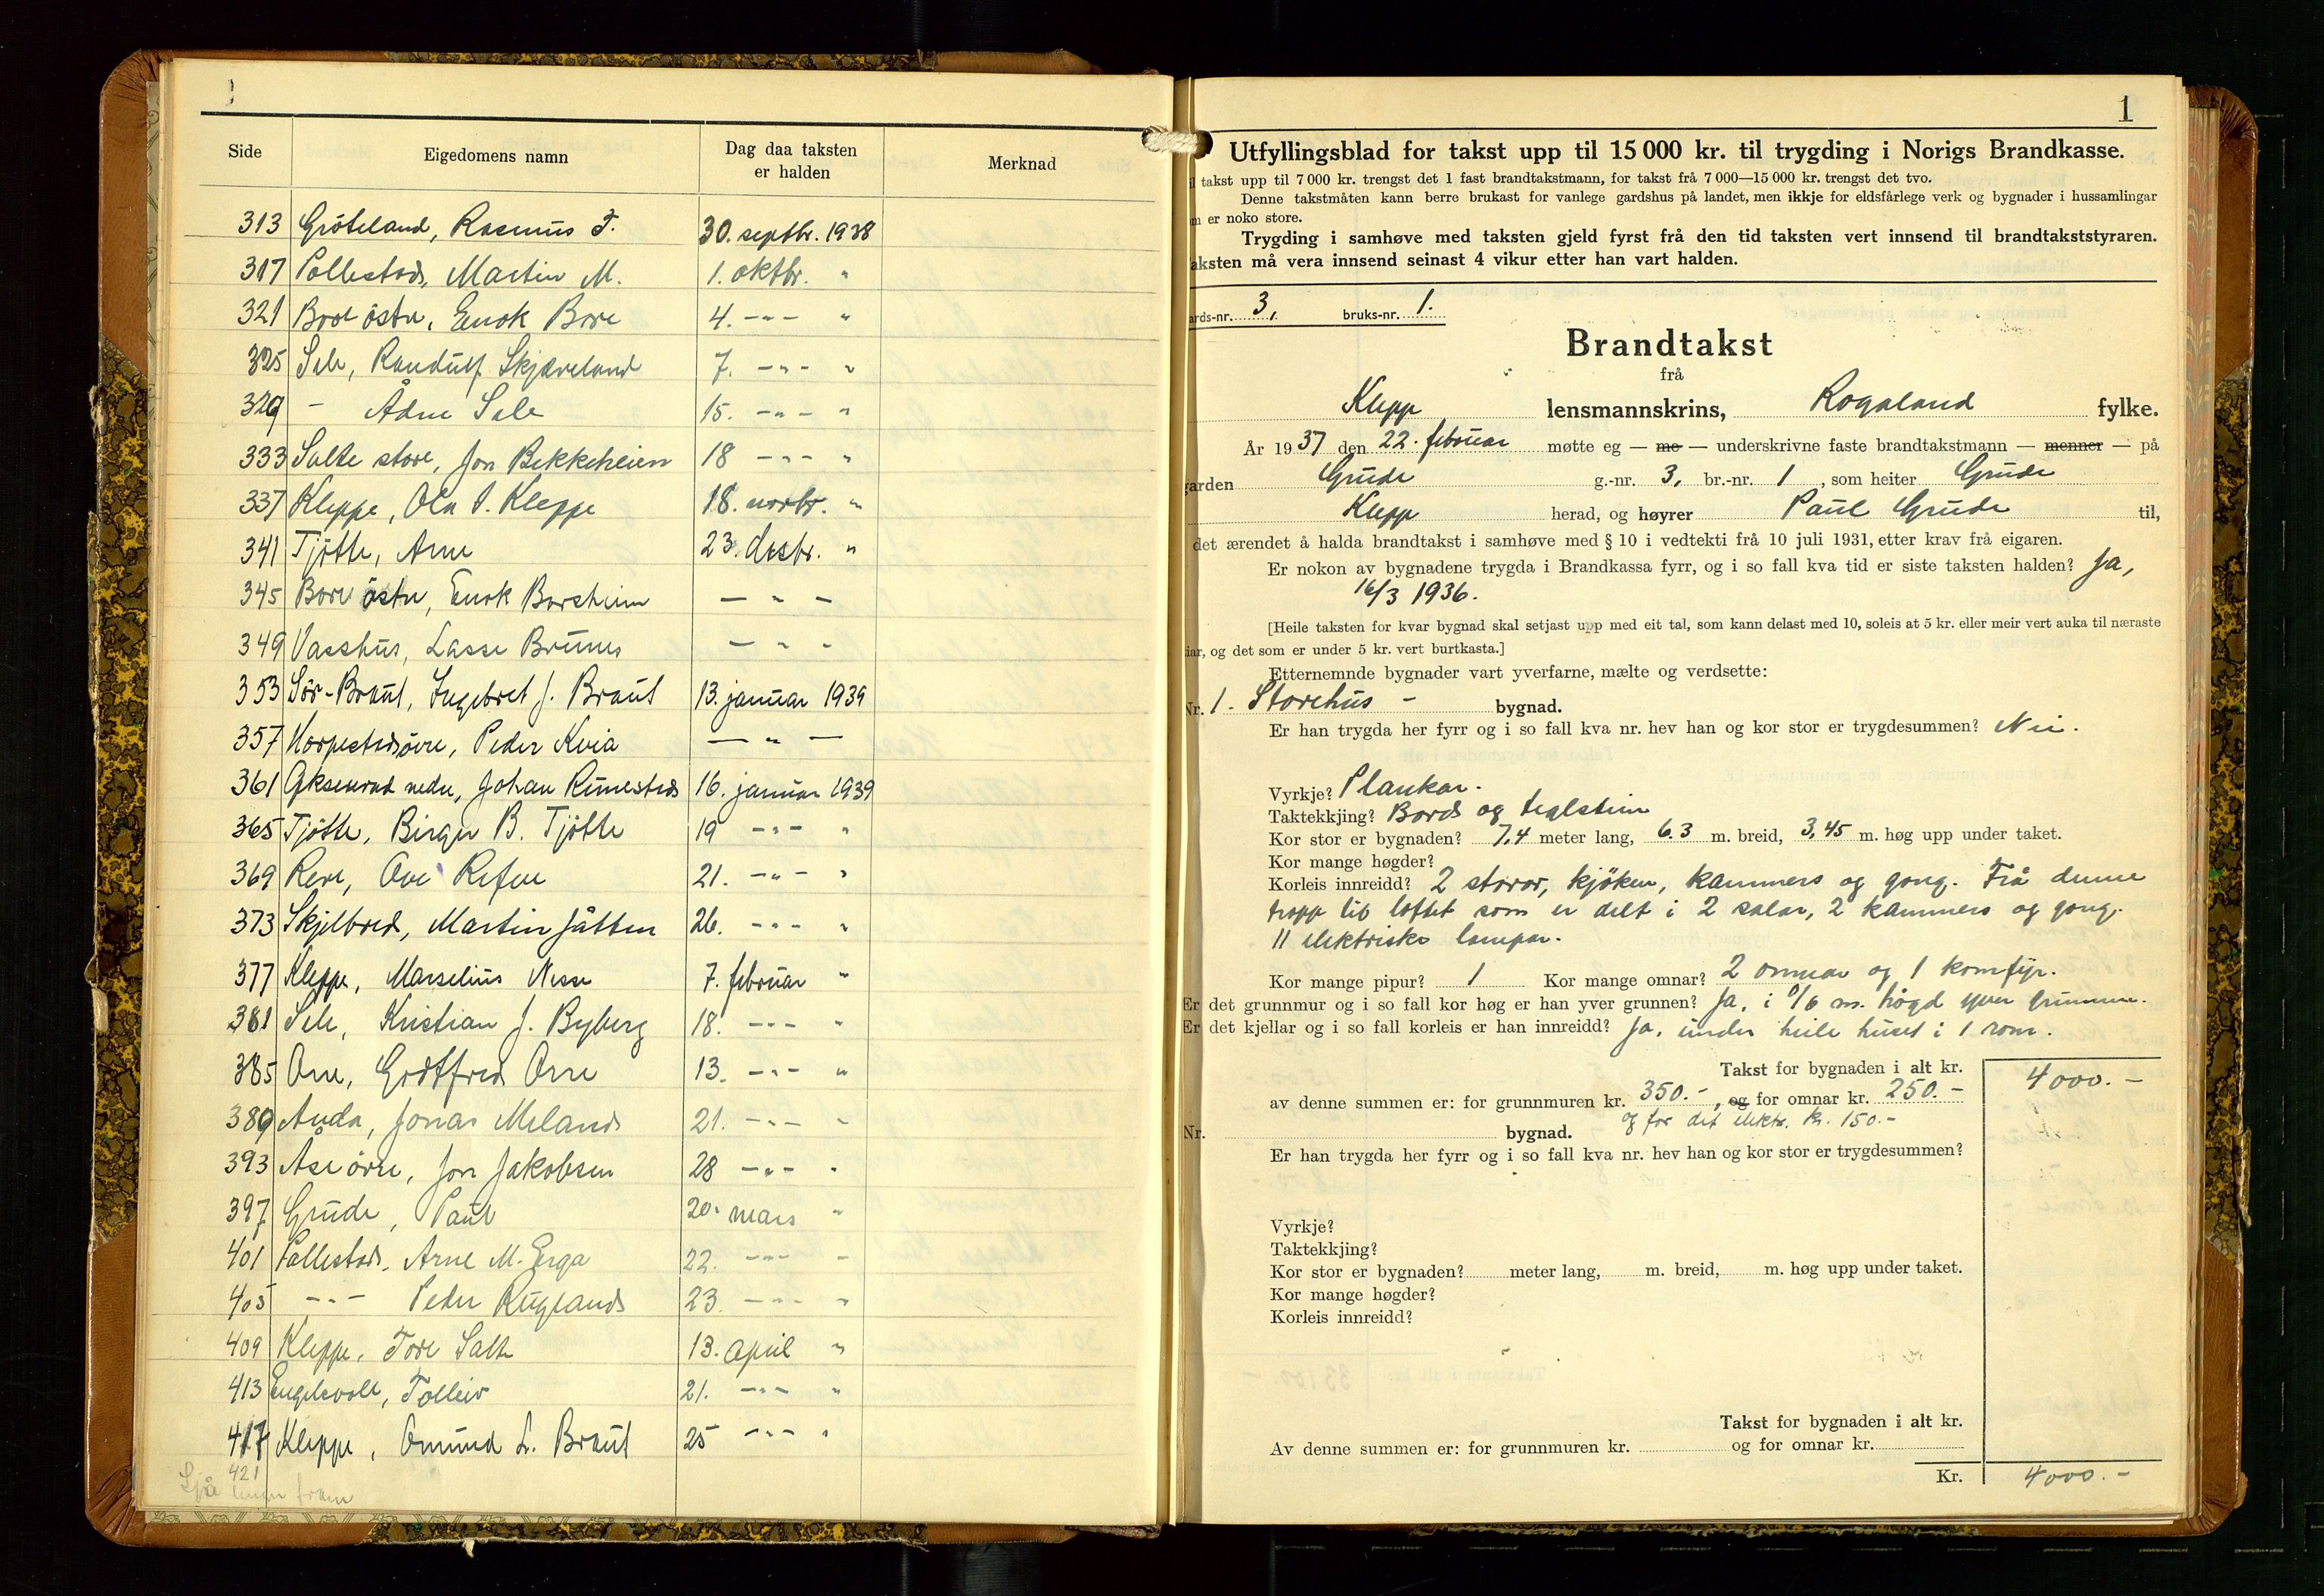 Side Eigedomens namn Dag daa taksten er halden Merknad
313 Gröteland, Rasmus T. 30. septbr. 1938
317 Pollestad, Martin M. 1. oktbr. "
321 Bore östre, Enok Bore 4. -"- "
325 Sele, Randulf Skjæveland 7. -"- "
329 - Ådne Sele 15. -"- "
333 Salte store, Jon Bekkeheien 18 -"- "
337 Kleppe, Ola S. Kleppe 18. novbr. "
341 Tjötte, Arne 23. desbr. "
345 Bore östre, Enok Borsheim - " -
349 Vasshus, Lasse Brunes - " -
353 Sör-Braut, Ingebret J. Braut 13. januar 1939
357 Horpestad övre, Peder Kvia - " -
361 Øksnevad nedre, Johan Rimestad 16. januar 1939
365 Tjötte, Birger B. Tjötte 19 -"- "
369 Reve, Ove Refve 21. -"- "
373 Skjelbred, Martin Jåtten 26. -"- "
377 Kleppe, Marselius Nesse 7. februar "
381 Sele, Kristian J. Byberg 18. -"- "
385 Orre, Godtfred Orre 13. -"- "
389 Anda, Jonas Meland 21. -"- "
393 Åse övre, Jon Jakobsen 28 -"- "
397 Grude, Paul 20. mars "
401 Pollestad, Arne M. Erga 22. -"- "
405 -"- Peder Rugland 23. -"- "
409 Kleppe, Tore Salte 13. april "
413 Engelsvoll, Tolleiv 21. -"- "
417 Kleppe, Omund L. Braut 25 -"- "
421
Sjå lenger fram
1
Utfyllingsblad for takst upp til 15 000 kr. til trygding i Norigs Brandkasse.
l takst upp til 7 000 kr. trengst det 1 fast brandtakstmann, for takst frå 7 000—15 000 kr. trengst det tvo.
Denne takstmåten kann berre brukast for vanlege gardshus på landet, men ikkje for eldsfårlege verk og bygnader i hussamlingar
m er noko store.
Trygding i samhøve med taksten gjeld fyrst frå den tid taksten vert innsend til brandtakststyraren.
aksten må vera innsend seinast 4 vikur etter han vart halden.
ards-nr. 3, bruks-nr. 1.
Brandtakst
frå
Klepp lensmannskrins, Rogaland fylke.
År 1937 den 22. februar møtte eg — me — underskrivne faste brandtakstmann — menner — på
garden Grude g.-nr. 3, br.-nr. 1, som heiter Grude
Klepp herad, og høyrer Paul Grude til,
det ærendet å halda brandtakst i samhøve med § 10 i vedtekti frå 10 juli 1931, etter krav frå eigaren.
Er nokon av bygnadene trygda i Brandkassa fyrr, og i so fall kva tid er siste taksten halden? Ja,
16/3 1936.
[Heile taksten for kvar bygnad skal setjast upp med eit tal, som kann delast med 10, soleis at 5 kr. eller meir vert auka til næraste
iar, og det som er under 5 kr. vert burtkasta.]
Etternemnde bygnader vart yverfarne, mælte og verdsette:
Nr. 1. Storehus - bygnad.
Er han trygda her fyrr og i so fall kva nr. hev han og kor stor er trygdesummen? Nei.
Vyrkje? Plankar.
Taktekkjing? Bord og teglstein
Kor stor er bygnaden? 7,4 meter lang, 6.3 m. breid, 3,45 m. høg upp under taket.
Kor mange høgder?
Korleis innreidd? 2 stovor, kjöken, kammers og gong. Frå denne
tropp til loftet som er delt i 2 salar, 2 kammers og gong.
11 elektriske lampar.
Kor mange pipur? 1 Kor mange omnar? 2 omnar og 1 komfyr.
Er det grunnmur og i so fall kor høg er han yver grunnen? Ja, i 0/6 m. högd yver grunnen.
Er det kjellar og i so fall korleis er han innreidd? Ja, under heile huset i 1 rom.
Takst for bygnaden i alt kr. 4000.-
av denne summen er: for grunnmuren kr. 350.-, og for omnar kr. 250.-
og for det elektr. kr. 150.-
Nr. bygnad.
Er han trygda her fyrr og i so fall kva nr. hev han og kor stor er trygdesummen?
Vyrkje?
Taktekkjing?
Kor stor er bygnaden? meter lang, m. breid, m. høg upp under taket.
Kor mange høgder?
Korleis innreidd?
Takst for bygnaden i alt kr.
Av denne summen er: for grunnmuren kr. og for omnar kr.
Kr. 4000.-